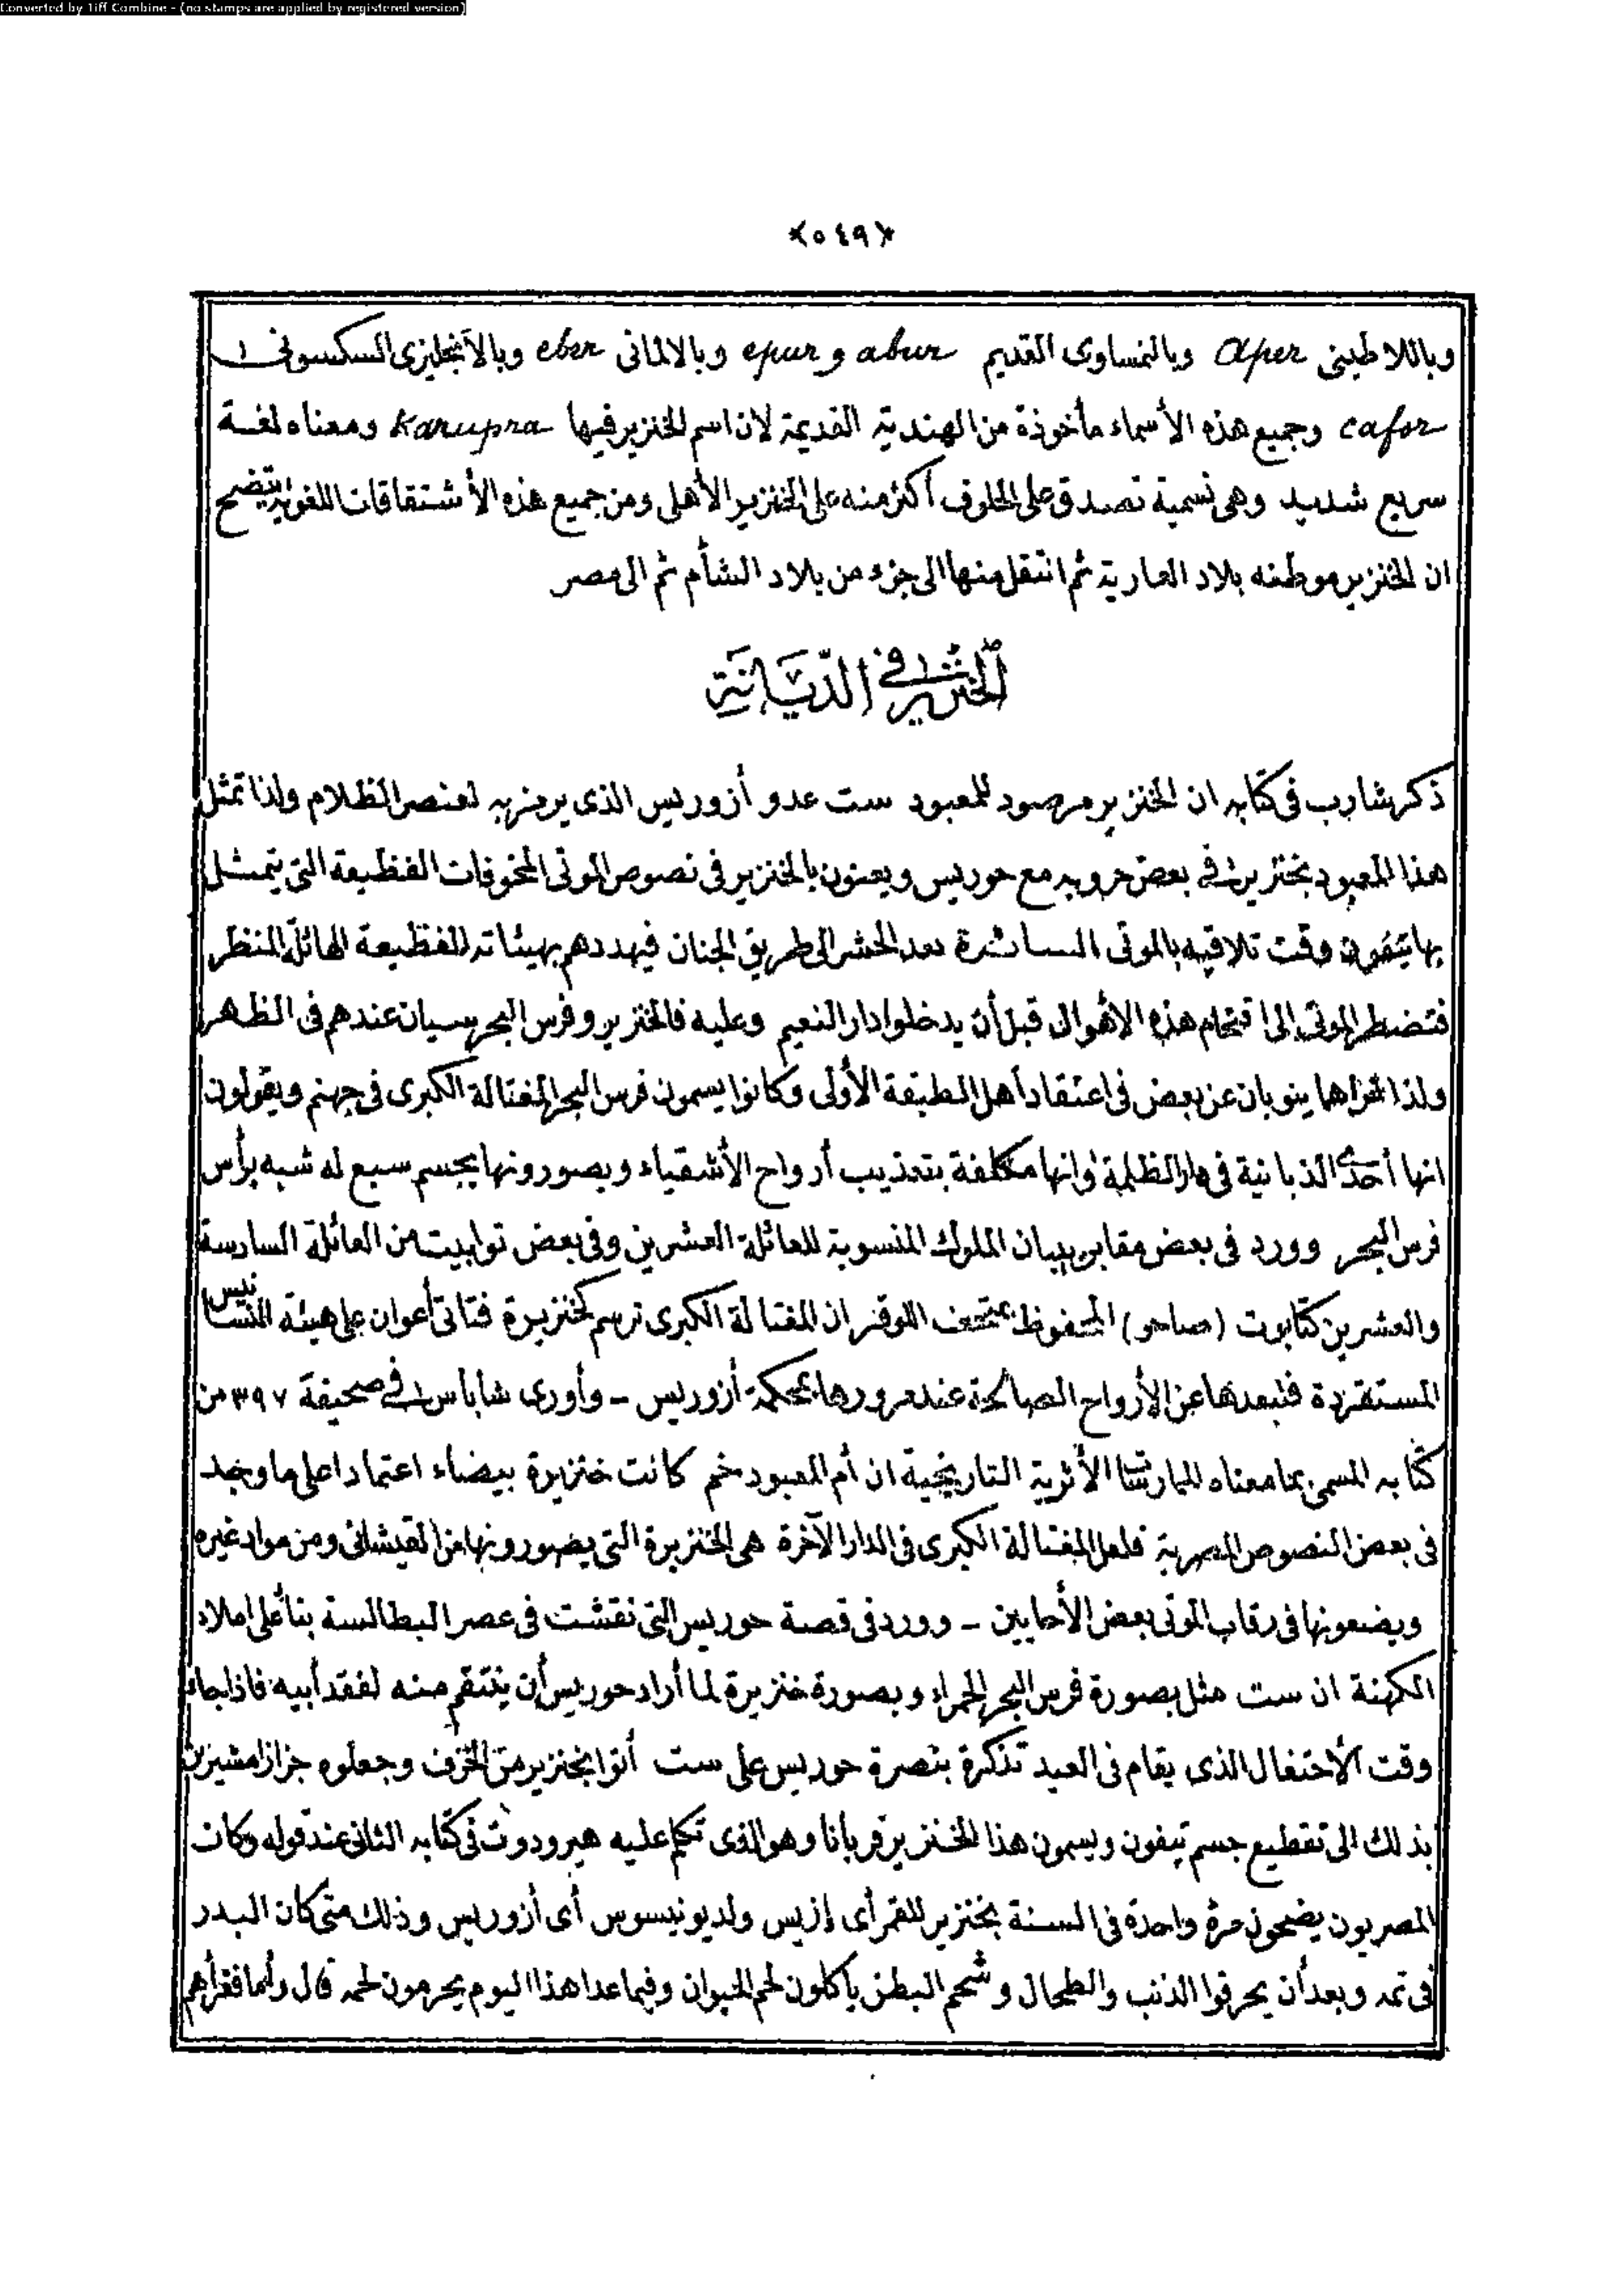 Converted by Tiff Combine - (no stamps are applied by registered version)
﴿٥٤٩﴾
وباللاطينى aper وبالنمساوى القديم abur و epur وبالالمانى eber وبالانجليزى السكسونى
cafor وجميع هذه الأسماء مأخوذة من الهندية القديمة لان اسم الخنزير فيها karupra ومعناه لغة
سريع شديد وهى تسمية تصدق على الحلوف أكثر منه على الخنزير الأهلى ومن جميع هذه الأشتقاقات اللغوية يتضح
ان الخنزير موطنه بلاد العارية ثم انتقل منها الى جزء من بلاد الشأم ثم الى مصر
الخنزير فى الديانة
ذكر شارب فى كتابه ان الخنزير مرصود للمعبود ست عدو أزوريس الذى يرمز به لعنصر الظلام ولذا تمثل
هذا المعبود بخنزير فى بعض حروبه مع حوريس ويعنون بالخنزير فى نصوص الموتى المخوفات الفظيعة التى يتمثل
بها تيفون وقت تلاقيه بالموتى السائرة بعد الحشر الى طريق الجنان فيهددهم بهيئاته الفظيعة الهائلة المنظر
فتضطر الموتى الى اقتحام هذه الأهوال قبل أن يدخلوا دار النعيم وعليه فالخنزير وفرس البحر سيان عندهم فى الظهر
ولذا تراهما ينوبان عن بعض فى اعتقاد أهل الطبقة الأولى وكانوا يسمون فرس البحر المغتالة الكبرى فى جهنم ويقولون
انها أحدى الذبانية فى دار الظلمة وانها مكلفة بتعذيب أرواح الأشقياء ويصورونها بجسم سبع له شبه برأس
فرس البحر وورد فى بعض مقابر بيبان الملوك المنسوبة للعائلة العشرين وفى بعض توابيت من العائلة السادسة
والعشرين كتابوت (صاحو) المحفوظ بمتحف اللوفر ان المغتالة الكبرى ترسم كخنزيرة فتأتى أعوان على هيئة النسانيس
المستقردة فتبعدها عن الأرواح الصالحة عند مرورها بمحكمة أزوريس - وأورى شاباس فى صحيفة ٣٩٧ من
كتابه المسمى بما معناه الأثرية التاريخية ان أم المعبود خم كانت خنزيرة بيضاء اعتمادا على ما وجد
فى بعض النصوص المصرية فلعل المغتالة الكبرى فى الدار الآخرة هى الخنزيرة التى يصورونها من القيشانى ومن مواد غيره
ويضعونها فى رقاب الموتى بعض الأحايين - وورد فى قصة حوريس التى نقشت فى عصر البطالسة بناء على املاء
الكهنة ان ست مثل بصورة فرس البحر الحمراء وبصورة خنزيرة لما أراد حوريس أن ينتقم منه لفقد أبيه فاذا جاء
وقت الأحتفال الذى يقام فى العيد تذكرة بنصرة حوريس على ست أتوا بخنزير من الخزف وجعلوه جزازا مشيرين
بذلك الى تقطيع جسم تيفون ويسمون هذا الخنزير قربانا وهو الذى تكلم عليه هيرودوت فى كتابه الثانى عند قوله وكان
المصريون يضحون مرة واحدة فى السنة بخنزير للقمر أى إزيس ولديونيسوس أى أزوريس وذلك متى كان البدر
فى تمه وبعد أن يحرقوا الذنب والطحال وشحم البطن يأكلون لحم الحيوان وفيما عدا هذا اليوم يحرمون لحمه قال وأما فقرأهم